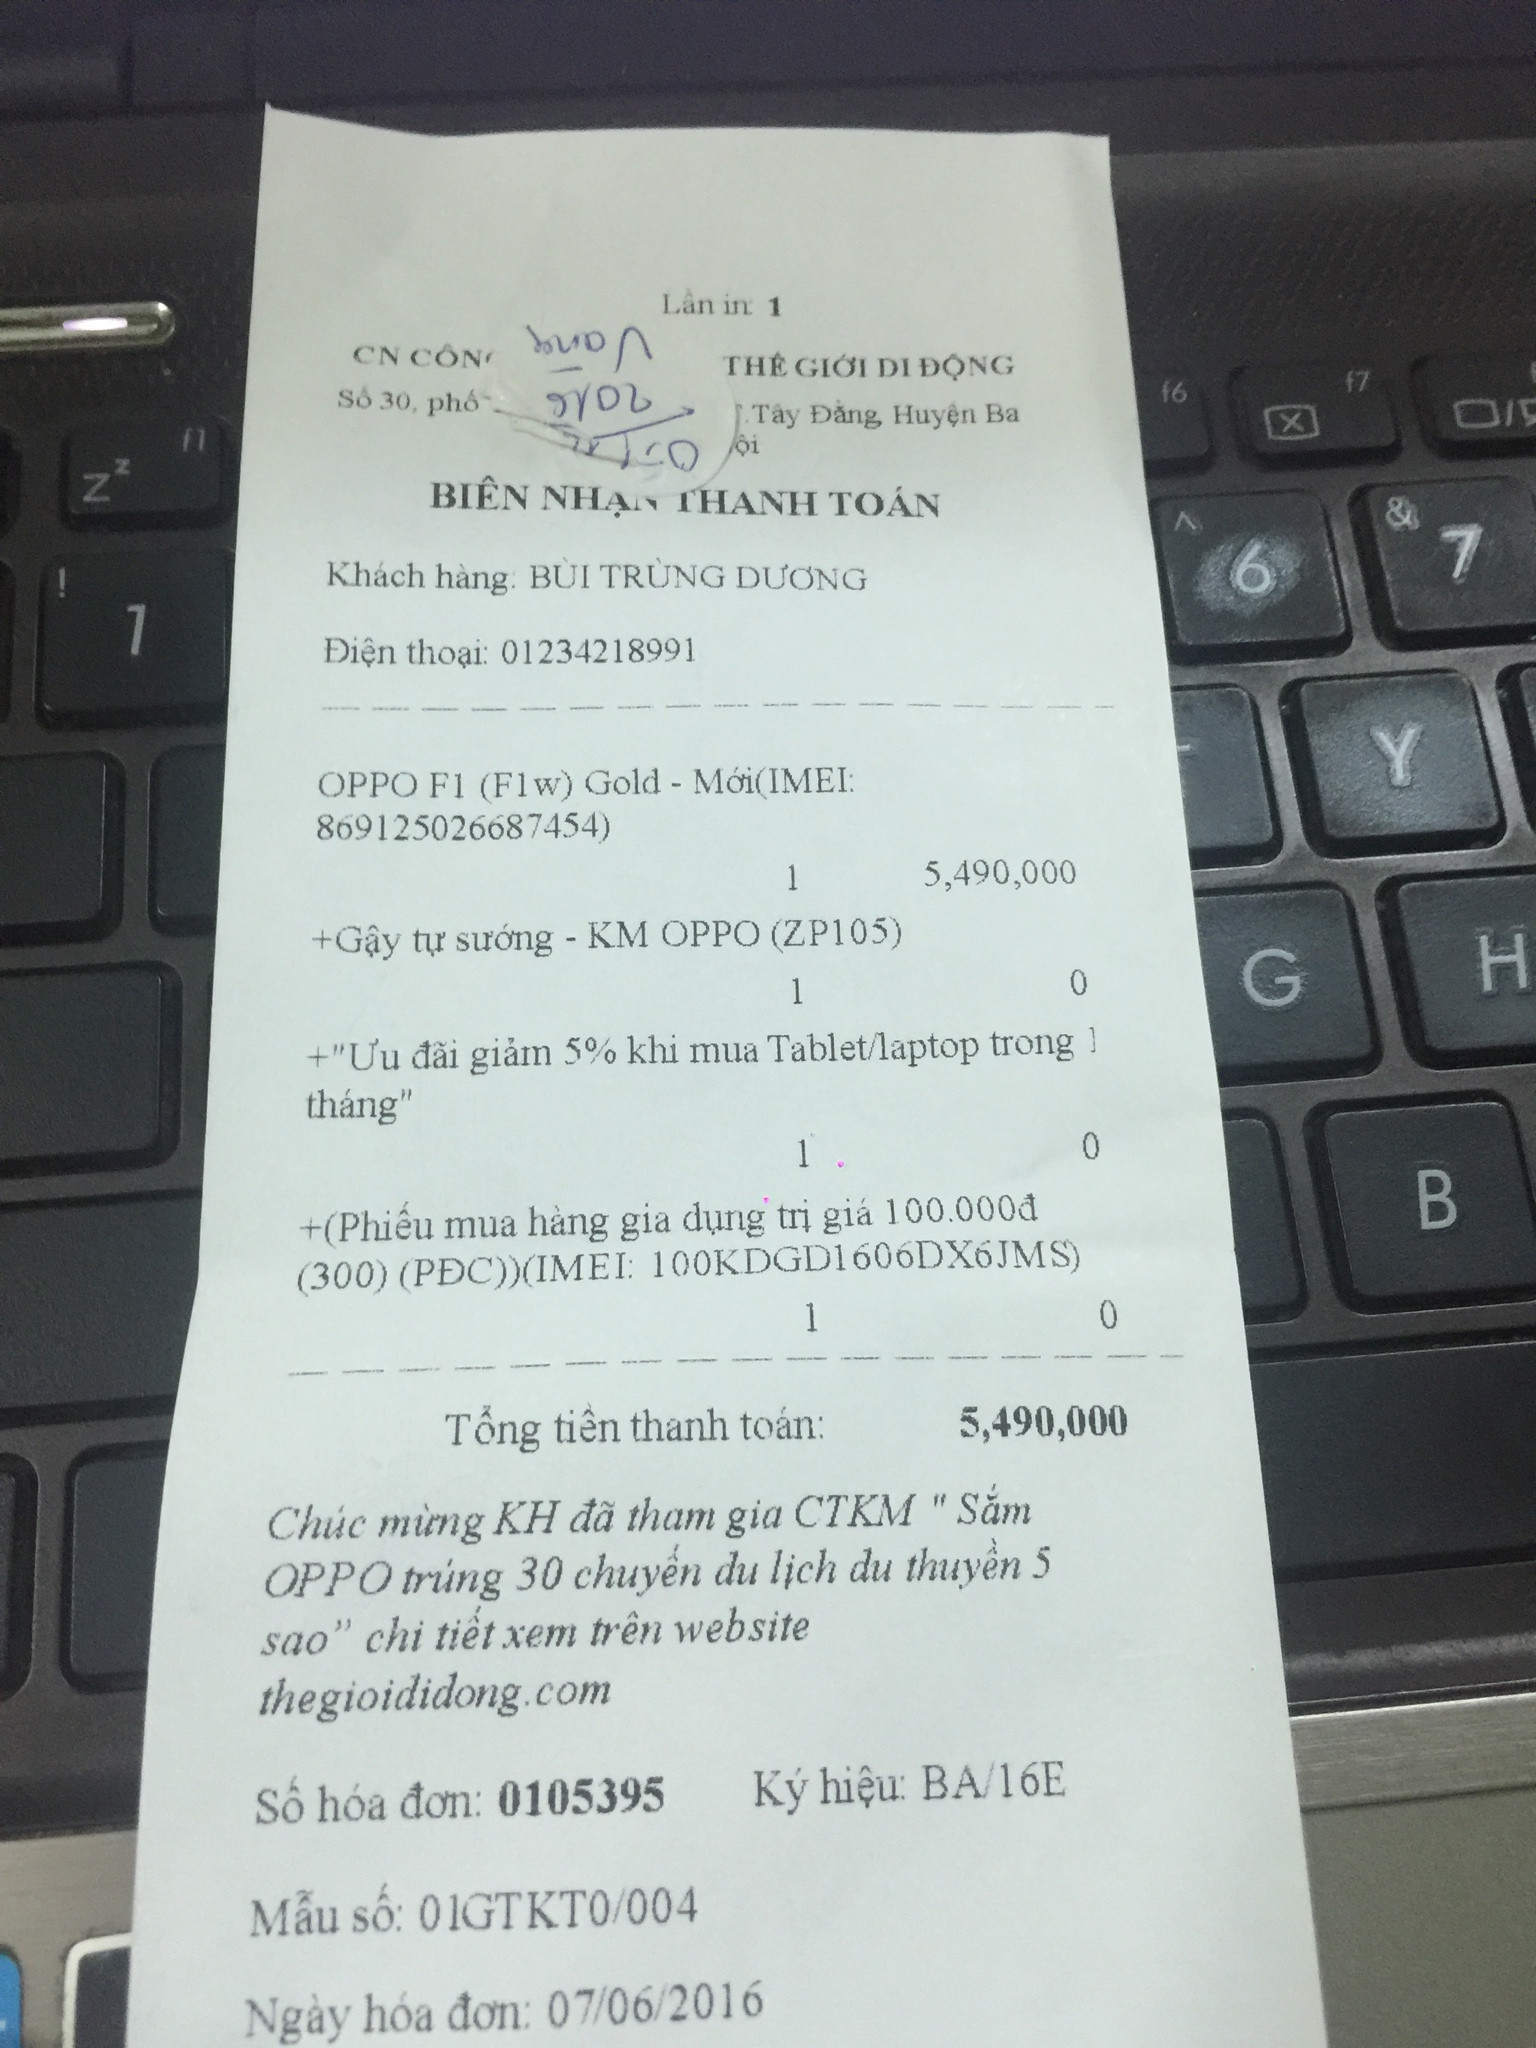 Lần in: 1
CN CÔN THẾ GIỚI DI ĐỘNG
Số 30, phố .Tây Đằng, Huyện Ba
ội
Vàng
BIÊN NHẬN THANH TOÁN
Khách hàng: BÙI TRÙNG DƯƠNG
Điện thoại: 01234218991
OPPO F1 (F1w) Gold - Mới(IMEI:
869125026687454)
1 5,490,000
+Gậy tự sướng - KM OPPO (ZP105)
1 0
+"Ưu đãi giảm 5% khi mua Tablet/laptop trong 1
tháng"
1 0
+(Phiếu mua hàng gia dụng trị giá 100.000đ
(300) (PĐC))(IMEI: 100KDGD1606DX6JMS)
1 0
Tổng tiền thanh toán: 5,490,000
Chúc mừng KH đã tham gia CTKM " Sắm
OPPO trúng 30 chuyến du lịch du thuyền 5
sao” chi tiết xem trên website
thegioididong.com
Số hóa đơn: 0105395 Ký hiệu: BA/16E
Mẫu số: 01GTKT0/004
Ngày hóa đơn: 07/06/2016
f1
z z
! 1
f6
f7
^ 6
& 7
Y
G
H
B